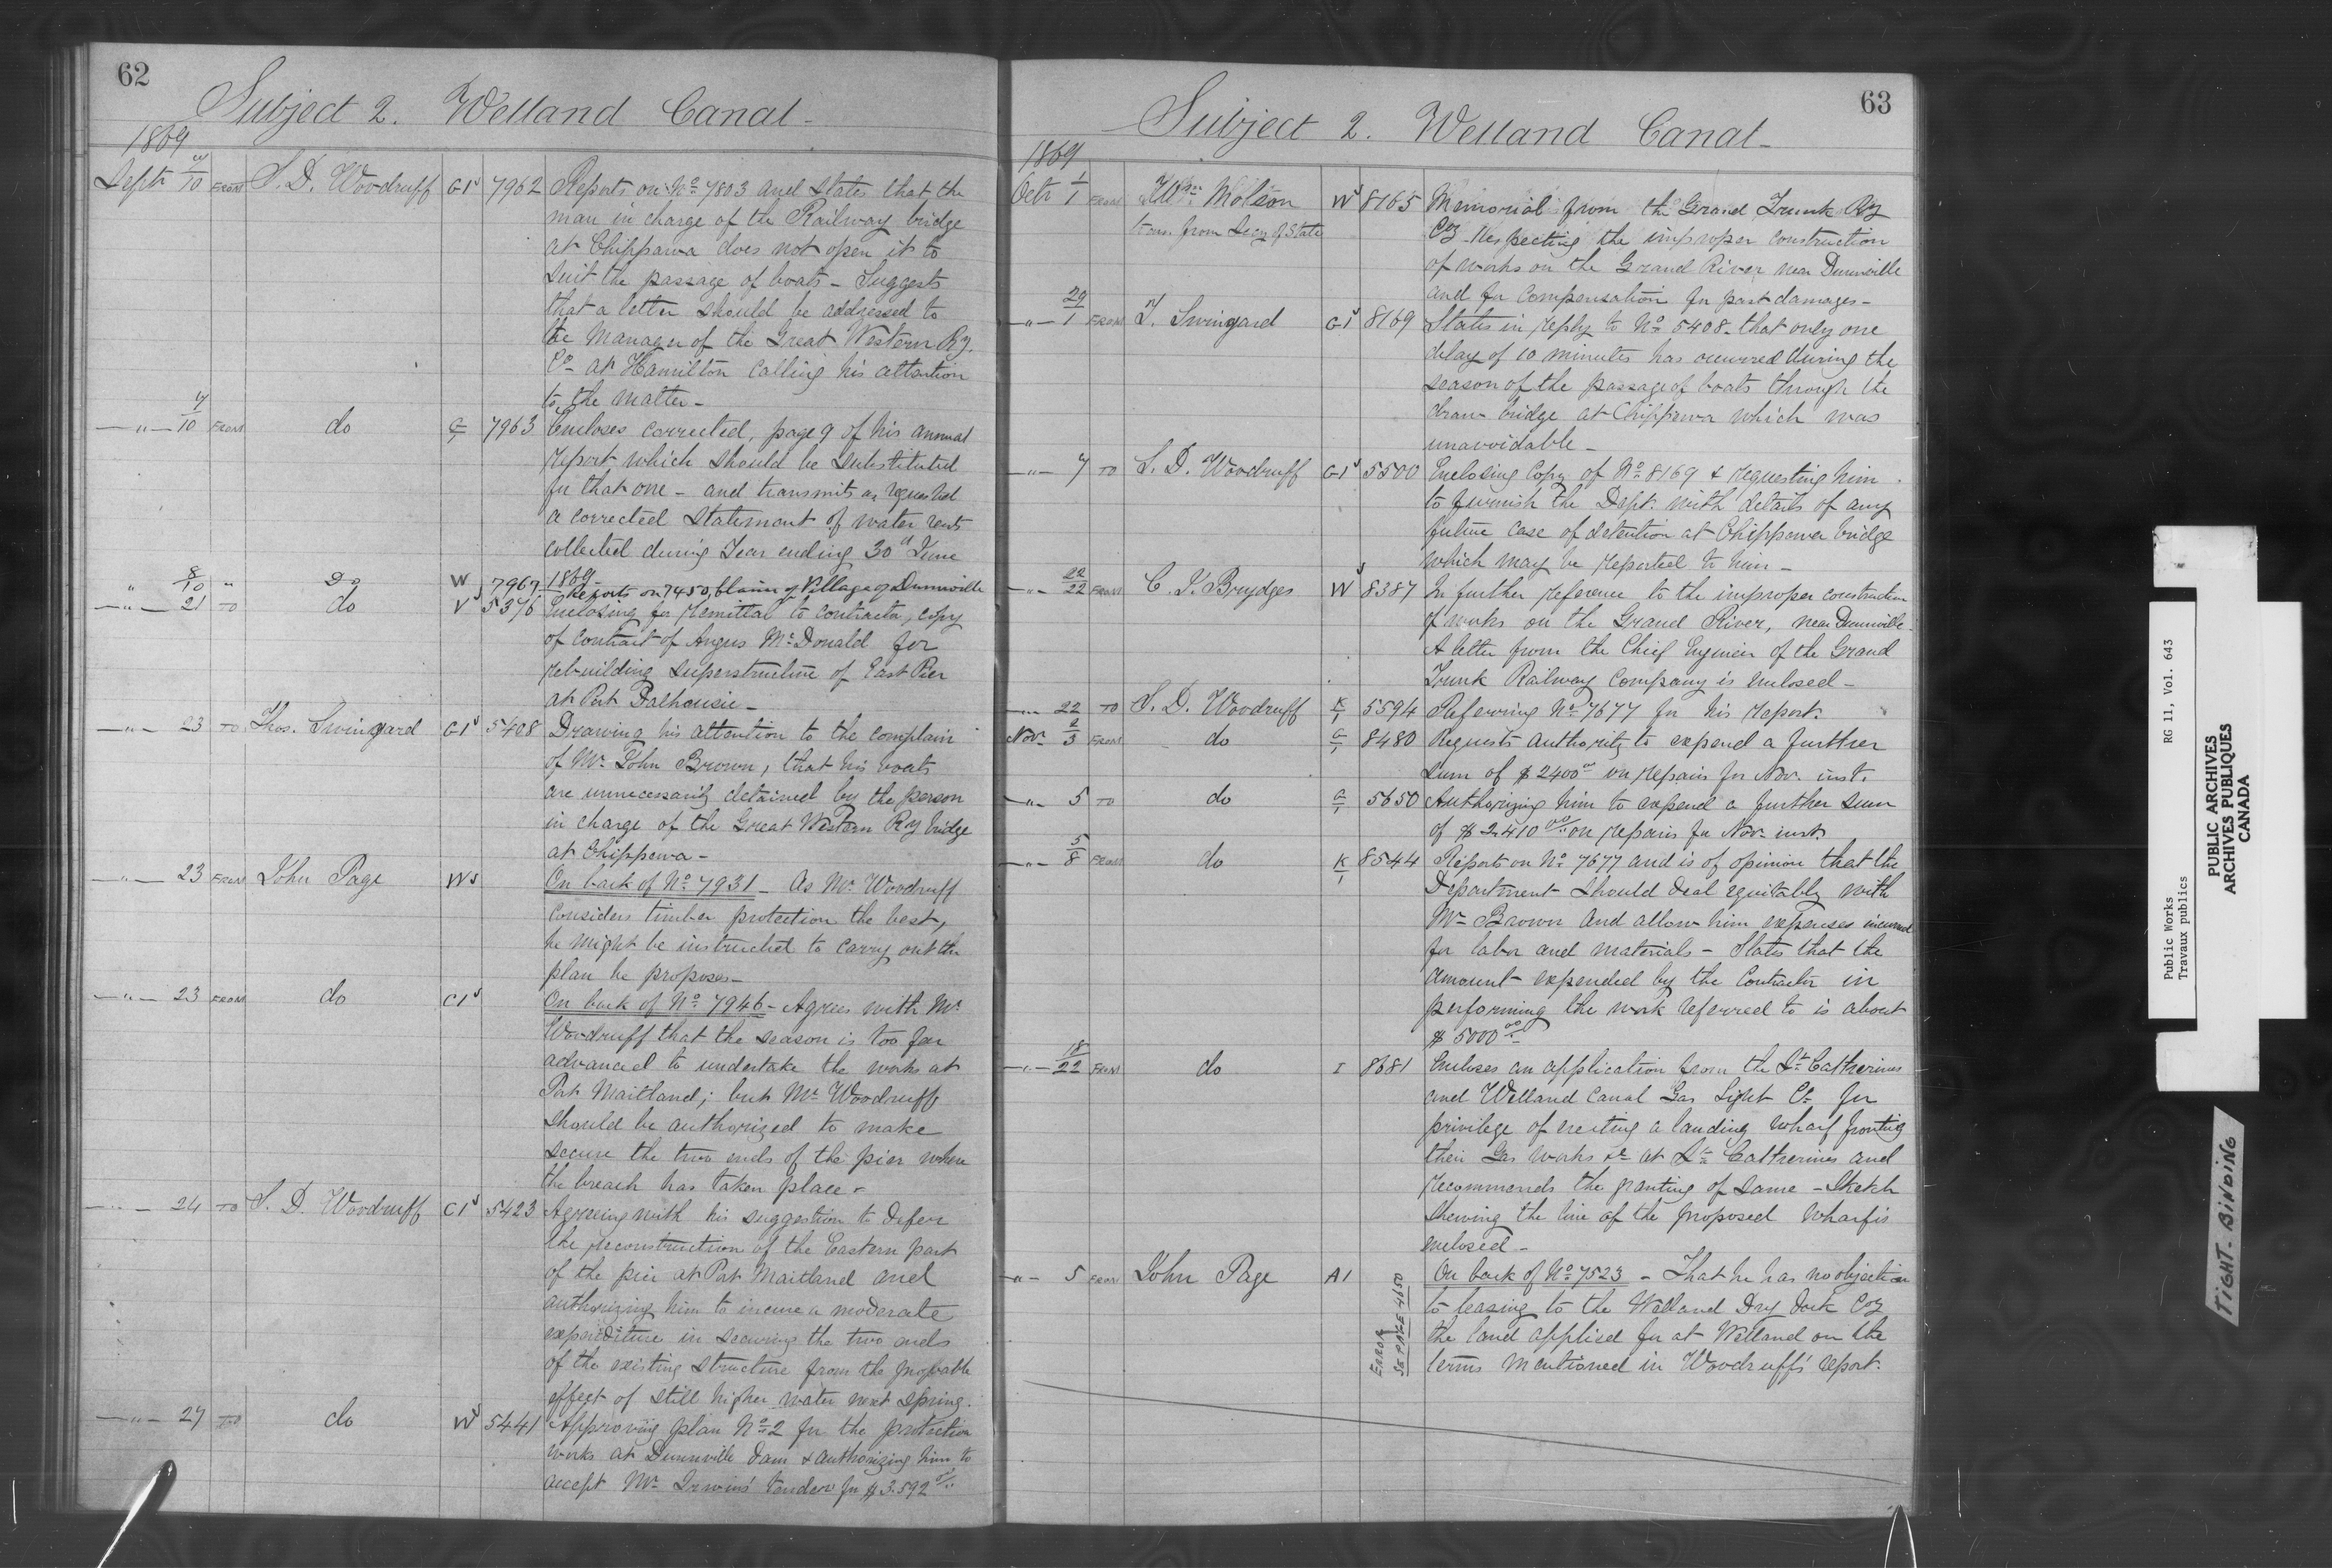 62
Subject 2. Welland Canal -
1869
Septr 10 FROM S. D. Woodruff G1s 7962 Reports on No 7803 and states that the
man in charge of the Railway bridge
at Chippawa does not open it to
suit the passage of boats - Suggests
that a letter should be addressed to
the Manager of the Great Western Ry.
Co at Hamilton calling his attention
to the matter -
-"- 7/10 FROM do G/1 7963 Encloses corrected, page 9 of his annual
report which should be substituted
for that one - and transmits as requested
a corrected statement of water rents
collected during Year ending 30th June
1869 -
" 8/10 " Do W 7967 Reports on 7450, claim of Village of Dunnville
-"- 21 TO do V 5376 Enclosing for remittal to contractor, copy
of contract of Angus McDonald for
rebuilding superstructure of East Pier
at Port Dalhousie -
-"- 23 TO Thos. Swinyard G1s 5408 Drawing his attention to the complain
of Mr John Brown, that his boats
are unnecessarily detained by the person
in charge of the Great Western Ry bridge
at Chippawa -
-"- 23 FROM John Page Ws On back of No 7931 - As Mr Woodruff
considers timber protection the best,
he might be instructed to carry out the
plan he proposes -
-"- 23 FROM do C1s On back of No 7946 - Agrees with Mr
Woodruff that the season is too far
advanced to undertake the works at
Port Maitland; but Mr Woodruff
should be authorized to make
secure the two ends of the pier where
the breach has taken place -
-"- 24 TO S. D. Woodruff C1s 5423 Agreeing with his suggestion to defer
the reconstruction of the Eastern part
of the pier at Port Maitland and
authorizing him to incure a moderate
expenditure in securing the two ends
of the existing structure from the probable
effect of still higher water next spring.
-"- 27 TO do Ws 5441 Approving plan No 2 for the protection
works at Dunnville Dam & authorizing him to
accept Mr Irwin's tender for $3.592 00/..
63
Subject 2. Welland Canal -
1869
Octr 1/1 FROM Molson Ws 8165 Memorial from the Grand Trunk Ry
trans. from Secy of State Coy respecting the improper construction
of works on the Grand River near Dunnville
and for compensation for past damages -
-"- 29/1 FROM T. Swinyard G1s 8169 States in reply to No 5408 - that only one
delay of 10 minutes has occurred during the
season of the passage of boats through the
draw bridge at Chippawa which was
unavoidable -
-"- 7 TO S. D. Woodruff G1s 5500 Enclosing Copy of No 8169 & requesting him
to furnish the Dept. with details of any
future case of detention at Chippawa bridge
which may be reported to him -
-"- 22/22 FROM C. J. Brydges Ws 8387 In further reference to the improper construction
of works on the Grand River, near Dunnville -
A letter from the Chief Engineer of the Grand
Trunk Railway Company is enclosed -
-"- 22 TO S. D. Woodruff K/1 5594 Referring No 7677 for his report.
Nov. 2/3 FROM do G/1 8480 Requests authority to expend a further
sum of $2400 00 on repairs for Nov. inst.
-"- 5 TO do G/1 5650 Authorizing him to expend a further sum
of $2410 00/.. on repairs for Nov. inst.
-"- 5/8 FROM do K/1 8544 Reports on No 7677 and is of opinion that the
Department should deal equitably with
Mr Brown and allow him expenses incurred
for labor and materials - States that the
amount expended by the Contractor in
performing the work referred to is about
$5000 00
-"- 18/22 FROM do I 8681 Encloses an application from the St Catherines
and Welland Canal Gas Light Co for
privilege of erecting a landing wharf fronting
their Gas works &c at St Catherines and
recommends the granting of same - Sketch
shewing the line of the proposed wharf is
enclosed -
-"- 5 FROM John Page A1 On back of No 7523 - That he has no objection
to leasing to the Welland Dry Dock Coy
the land applied for at Welland on the
terms mentioned in Woodruff's report.
ERROR
SE PAGE 460
Public Works RG 11, Vol. 643
Travaux publics
PUBLIC ARCHIVES
ARCHIVES PUBLIQUES
CANADA
TIGHT-BINDING